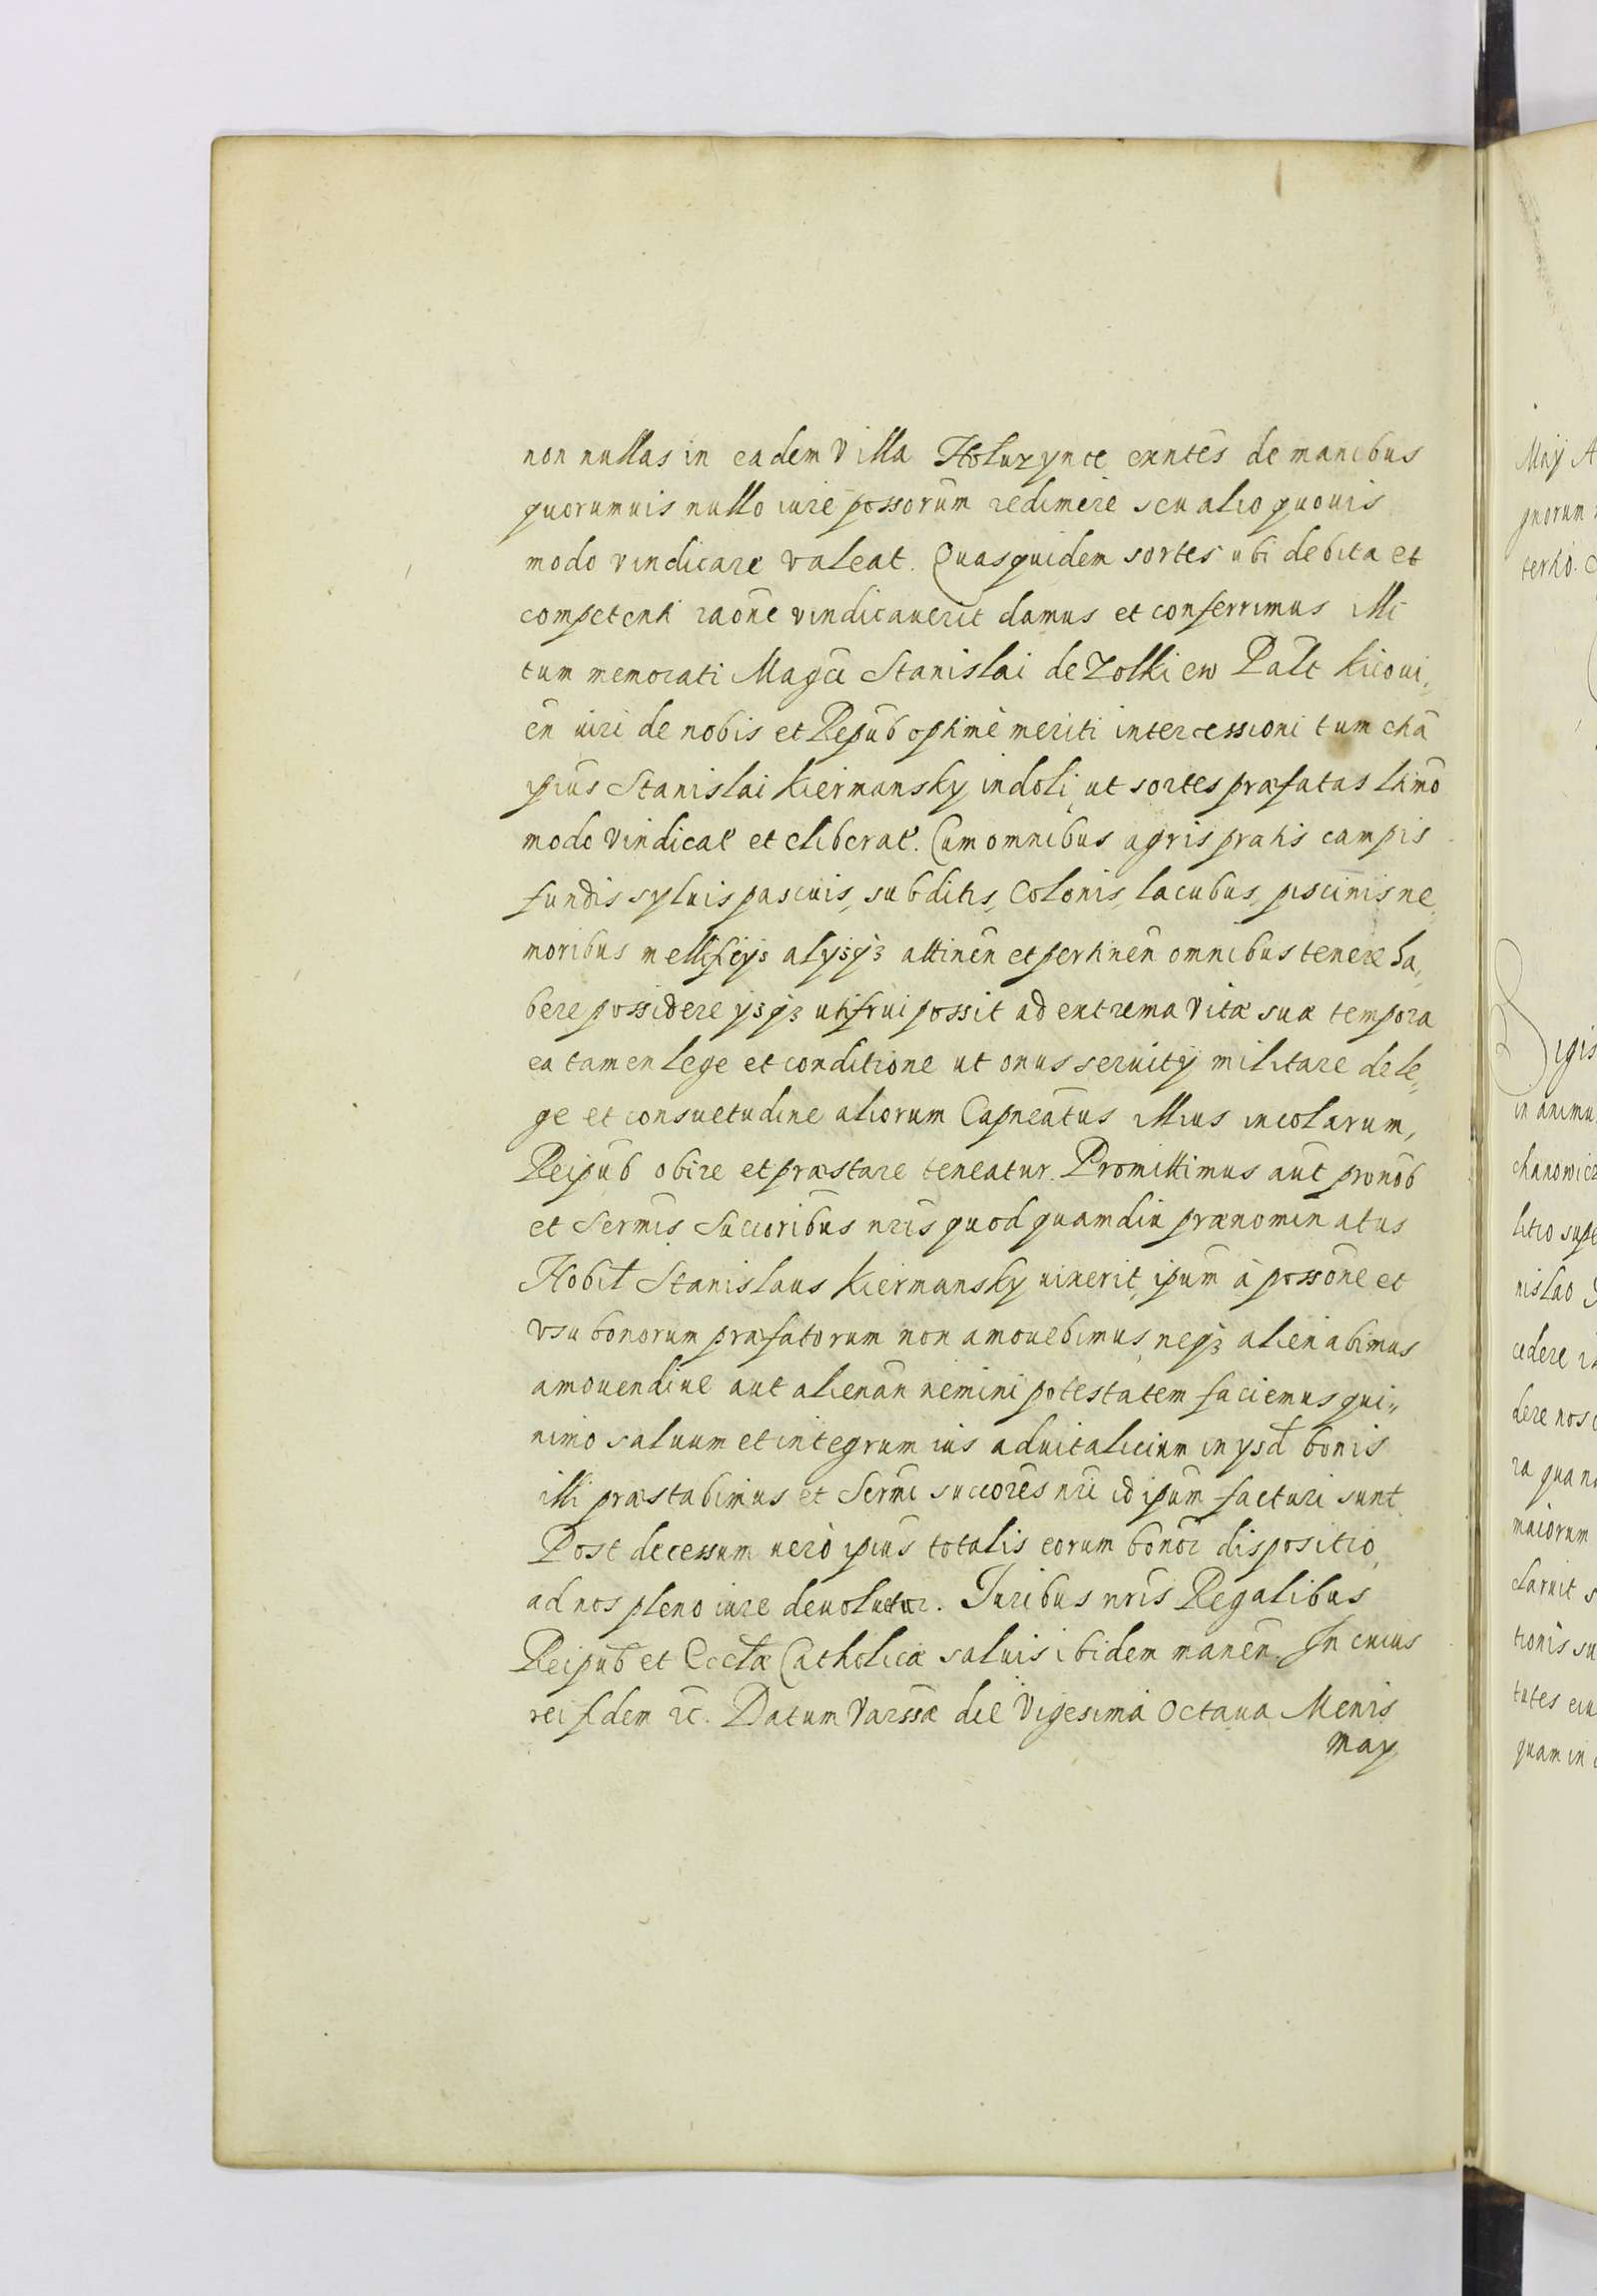 non nullas in eadem Villa Holuzynce exntēs de manibus
quorumuis nullo iure possorūm redimere seu alio quouis
modo vindicare valeat. Quasquidem sortes ubi debita et
competenti raōne vindicauerit damus et conferrimus illi
tum memorati Magcī Stanislai de Zolkiew Palt Kiioui„
ēn uiri de nobis et Repūb optimè meriti intercessioni tum etiā
ipīus Stanislai Kiermansky indoli, ut sortes præfatas ltimō
modo vindicat et eliberat. Cum omnibus agris pratis campis
fundis syluis pascuis, subditis, Colonis, lacubus, piscinis ne„
moribus mellificijs alijsqȝ attinēn et pertinēn omnibus tenere ha„
bere possidere ijsqȝ utifrui possit ad extrema vitæ suæ tempora
ea tamen lege et conditione ut onus seruitij militare de le„
ge et consuetudine aliorum Capneātus illius incolarum,
Reipūb obire et præstare teneatur. Promittimus aūt pronōb
et Sermīs Succoribūs nrīs quod quamdiu prænominatus
Nobil Stanislaus Kiermansky uixerit, ipūm à possōne et
vsu bonorum præfatorum non amouebimus, neqȝ alienabimus
amouendiue aut alienān nemini potestatem faciemus qui„
nimo saluum et integrum ius aduitalicium in ysd̄ bonis
illi præstabimus et Sermī succorēs nrī id ipūm facturi sunt.
Post decessum uerò ipīus totalis eorum bonōr dispositio,
ad nos pleno iure deuoluetur. Iuribus nrīs Regalibus
Reipūb et Eccl̄æ Catholicæ saluis ibidem manēn. In cuius
rei fidem ec̄. Datum Varssæ die Vigesima Octaua Menīs
May